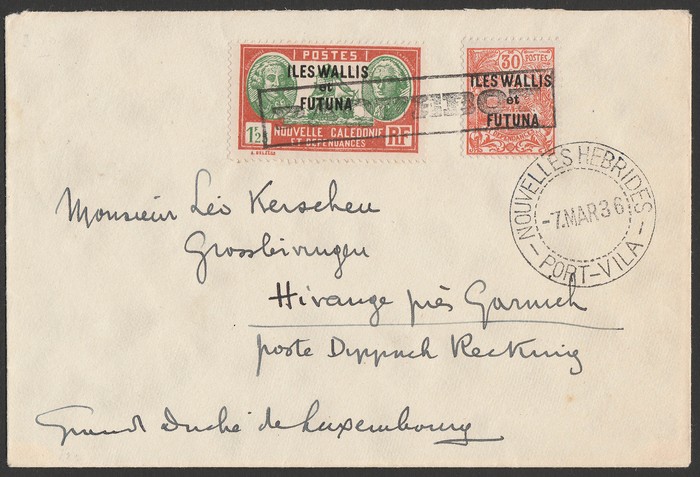 POSTES
ILES WALLIS
et
FUTUNA
1F,25
NOUVELLE CALÉDONIE
ET DÉPENDANCES
RF
30
POSTES
ILES WALLIS
et
FUTUNA
PAQUEBOT
NOUVELLES HEBRIDES
-7.MAR36
- PORT-VILA -
Monsieur Léo Kerschen
Grossbivingen
Hivange près Garnich
poste Dippach Reckning
Grand Duché de Luxembourg